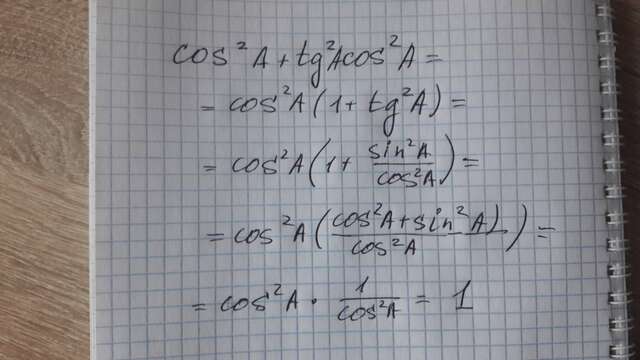 cos²A + tg²Acos²A =
= cos²A(1 + tg²A) =
= cos²A(1 + sin²A/cos²A) =
= cos²A((cos²A + sin²A)/cos²A) =
= cos²A · 1/cos²A = 1